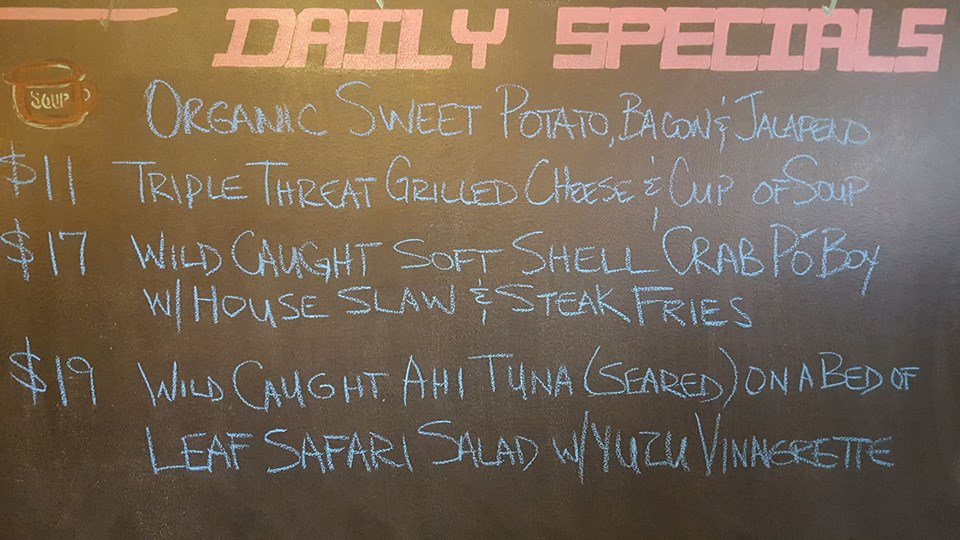 DAILY SPECIALS
SOUP ORGANIC SWEET POTATO, BACON & JALAPENO
$11 TRIPLE THREAT GRILLED CHEESE & CUP OF SOUP
$17 WILD CAUGHT SOFT SHELL CRAB PO'BOY
W/ HOUSE SLAW & STEAK FRIES
$19 WILD CAUGHT AHI TUNA (SEARED) ON A BED OF
LEAF SAFARI SALAD W/ YUZU VINAIGRETTE